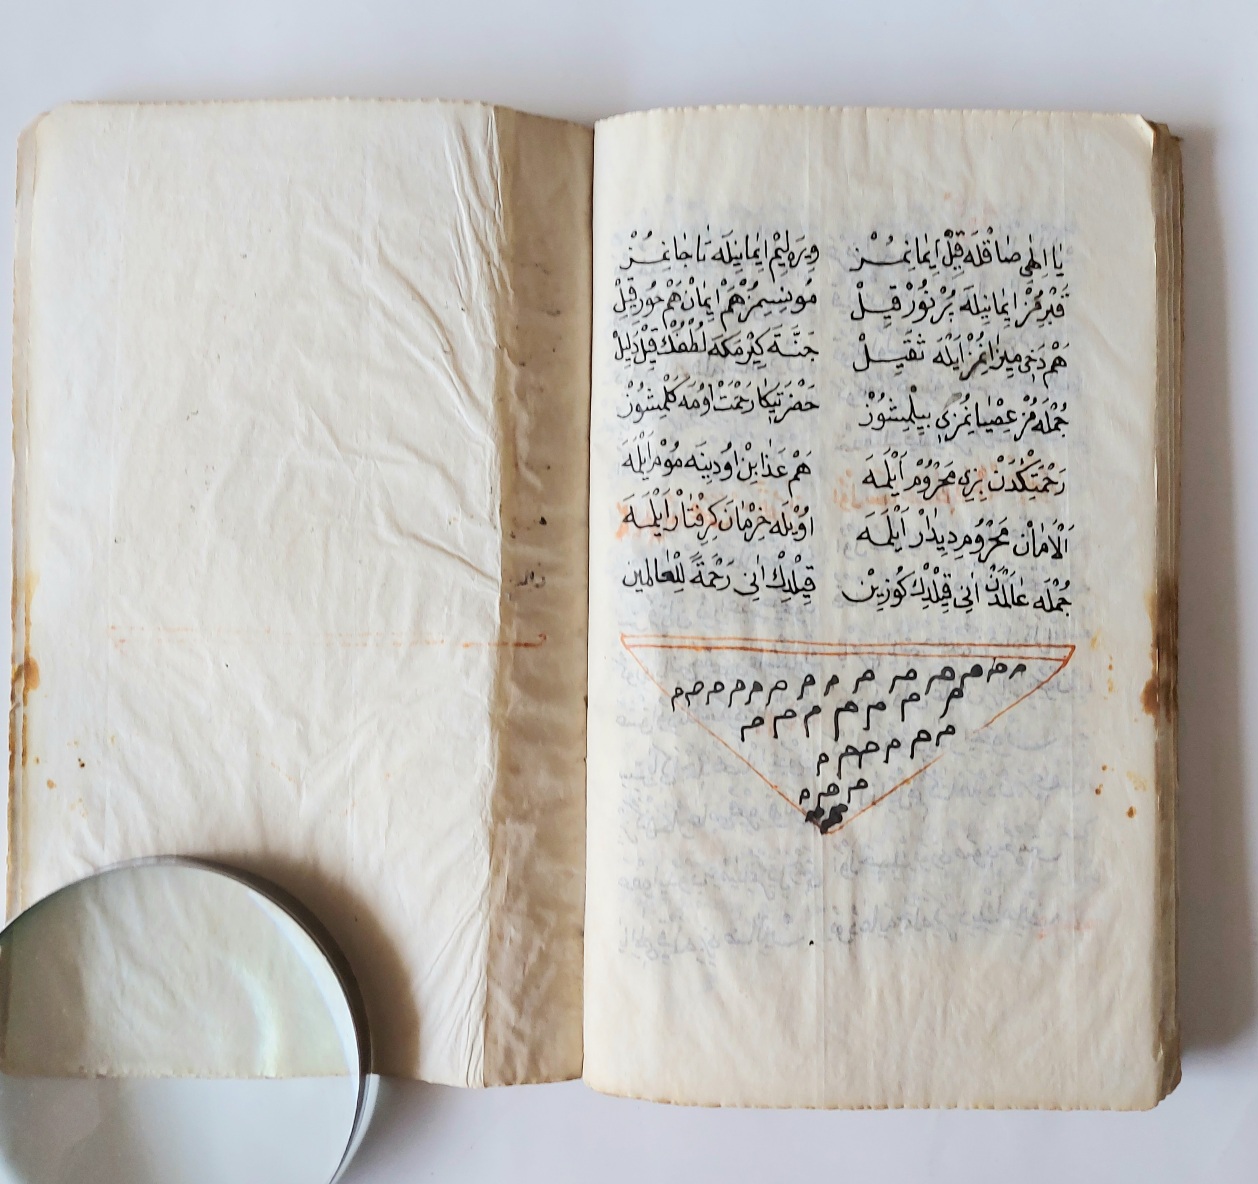 يَا اِلٰهِى صَاقْلَه قِيلْ اِيمَانِمُزْ وِيرَه لِيْم اِيمَانِيلَه تَا جَانِمُزْ
قَبْرِمُزْ اِيمَانِيلَه پُرْ نُورْ قِيلْ مُونِسِمُزْ هَمْ اِيمَانْ هَمْ حُورْ قِيلْ
هَمْ دَخِى مِيزَانِمُزْ اَيْلَه ثَقِيلْ جَنَّتَه كِيْرمَكَه لُطْفُكْ قِلْ دَلِيلْ
جُمْلَه مُزْ عِصْيَانِمُزِى بِيلْمِشُوزْ حَضْرَتِيكَا رَحْمَت اُومَه كَلْمِشُوزْ
رَحْمَتِكْدَنْ بِزِى مَحْرُومْ اَيْلَمَه هَمْ عَذَابِنْ اُودِينَه مُومْ اَيْلَه
اَلْاَمَانْ مَحْرُومِ دِيدَارْ اَيْلَمَه اُويْلَه حِرْمَانَ كِرِفْتَارْ اَيْلَمَه
جُمْلَه عَالَمْدَنْ اَنِى قِيلْدِكْ كُوزِينْ قِيلْدِكْ اَنِى رَحْمَةً لِلْعَالَمِين
م م م م م م م م م م م م م م م م
م م م م م م م
م م م م م م
م م م